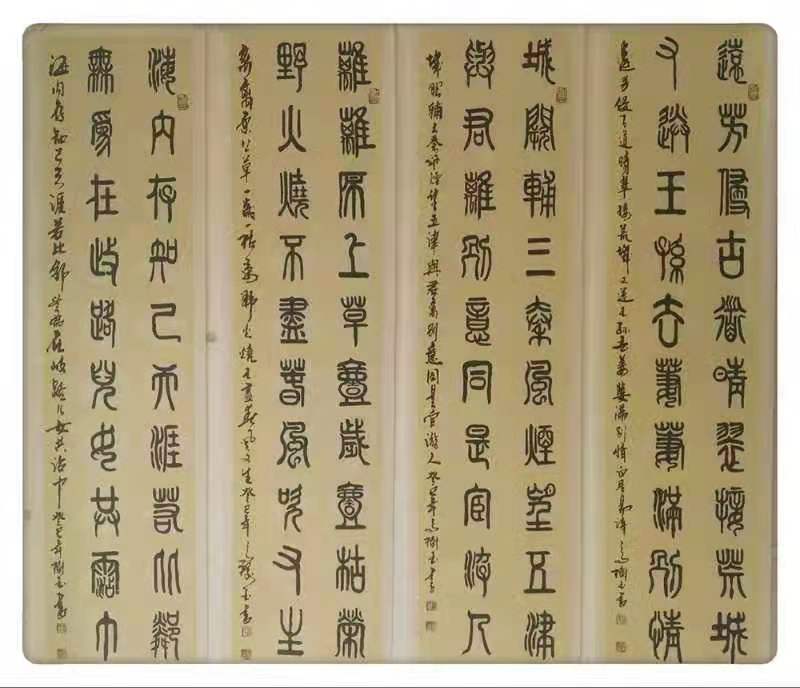 遠芳侵古道晴翠接荒城
又送王孫去萋萋滿別情
遠芳侵古道晴翠接荒城又送王孫去萋萋滿別情白居易詩
城闕輔三秦風煙望五津
與君離別意同是宦游人
城闕輔三秦風烟望五津與君離別意同是宦游人癸巳年樹玉書
離離原上草壹歲壹枯榮
野火燒不盡春風吹又生
離離原上草一歲一枯榮野火燒不盡春風吹又生癸巳年玉書
海內存知己天涯若比鄰
無爲在歧路兒女共霑巾
海内存知己天涯若比鄰無爲在歧路兒女共沾巾癸巳年樹玉書